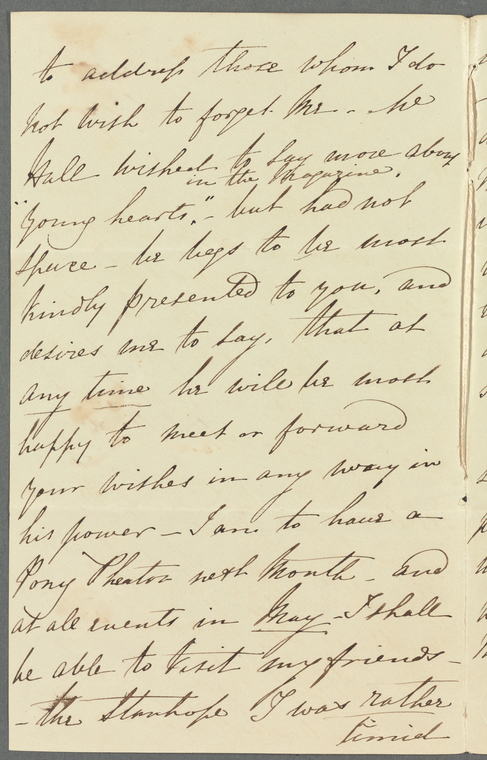 to address those whom I do
not wish to forget me - Mr
Hall wished to say more about
in the Magazine.
"Young hearts," - but had not
space - he begs to be most
kindly presented to you, and
desires me to say, that at
any time he will be most
happy to meet or forward
your wishes in any way in
his power - I am to have a
Pony Pheaton next Month - and
at all events in May - I shall
be able to visit my friends -
- the Stanhope I was rather
timid